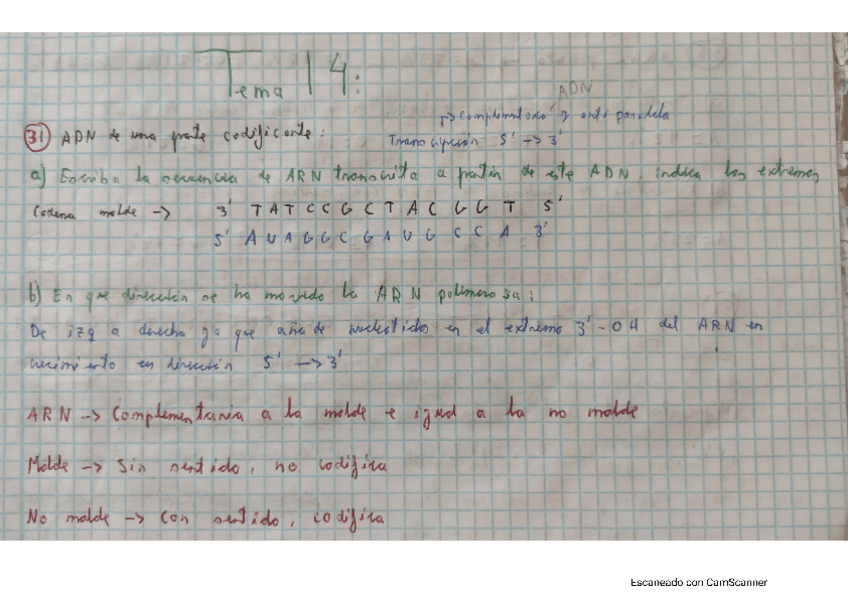 Tema 14:
ADN
↳> Complementario y anti paralela
31 ADN de una parte codificante:
Transcripción 5' -> 3'
a) Escriba la secuencia de ARN transcrita a partir de este ADN. indica los extremos
Cadena molde -> 3' T A T C C G C T A C G G T 5'
5' A U A G G C G A U G C C A 3'
b) En que dirección se ha movido la ARN polimerasa:
De izq a derecha ya que añade nucleotidos en el extremo 3'-OH del ARN en
crecimiento en dirección 5' -> 3'
ARN -> Complementaria a la molde e igual a la no molde
Molde -> Sin sentido, no codifica
No molde -> Con sentido, codifica
Escaneado con CamScanner